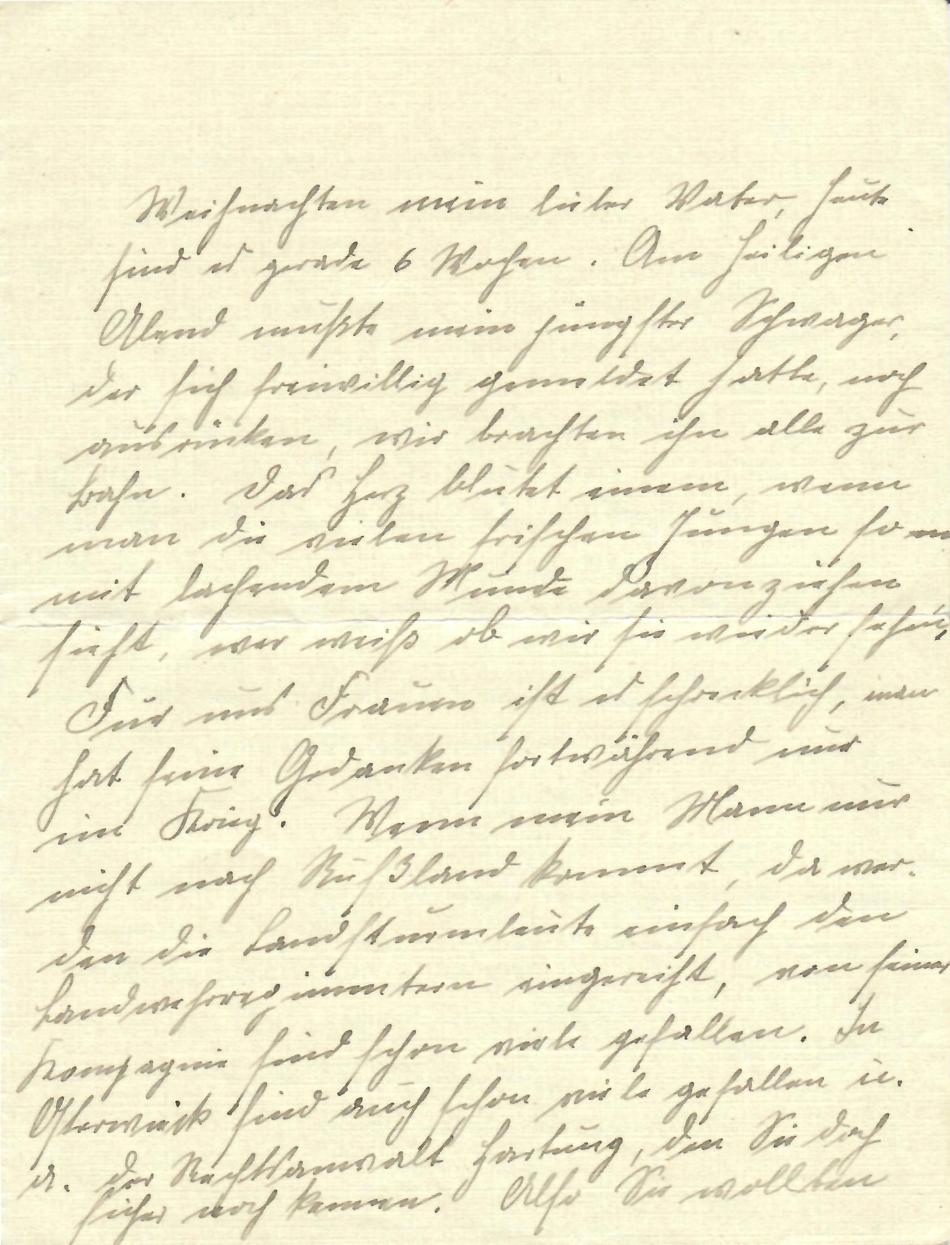 Weihnachten mein lieber Vater, heute
sind es gerade 6 Wochen. Am heiligen
Abend mußte mein jüngster Schwager,
der sich freiwillig gemeldet hatte, noch
ausrücken, wir brachten ihn alle zur
Bahn. Das Herz blutet einem, wenn
man die vielen frischen Jungen so
mit lachendem Munde davonziehen
sieht, wer weiß ob wir sie wiedersehen,
Für uns Frauen ist es schrecklich, man
hat seine Gedanken fortwährend nur
im Krieg. Wenn mein Mann nur
nicht nach Rußland kommt, da wer-
den die Landsturmleute einfach den
Landwehrregimentern eingereiht, von seiner
Kompagnie sind schon viele gefallen. In
Osterwieck sind auch schon viele gefallen u.
a. der Rechtsanwalt Hartung, den Sie doch
sicher noch kennen. Also Sie wollten